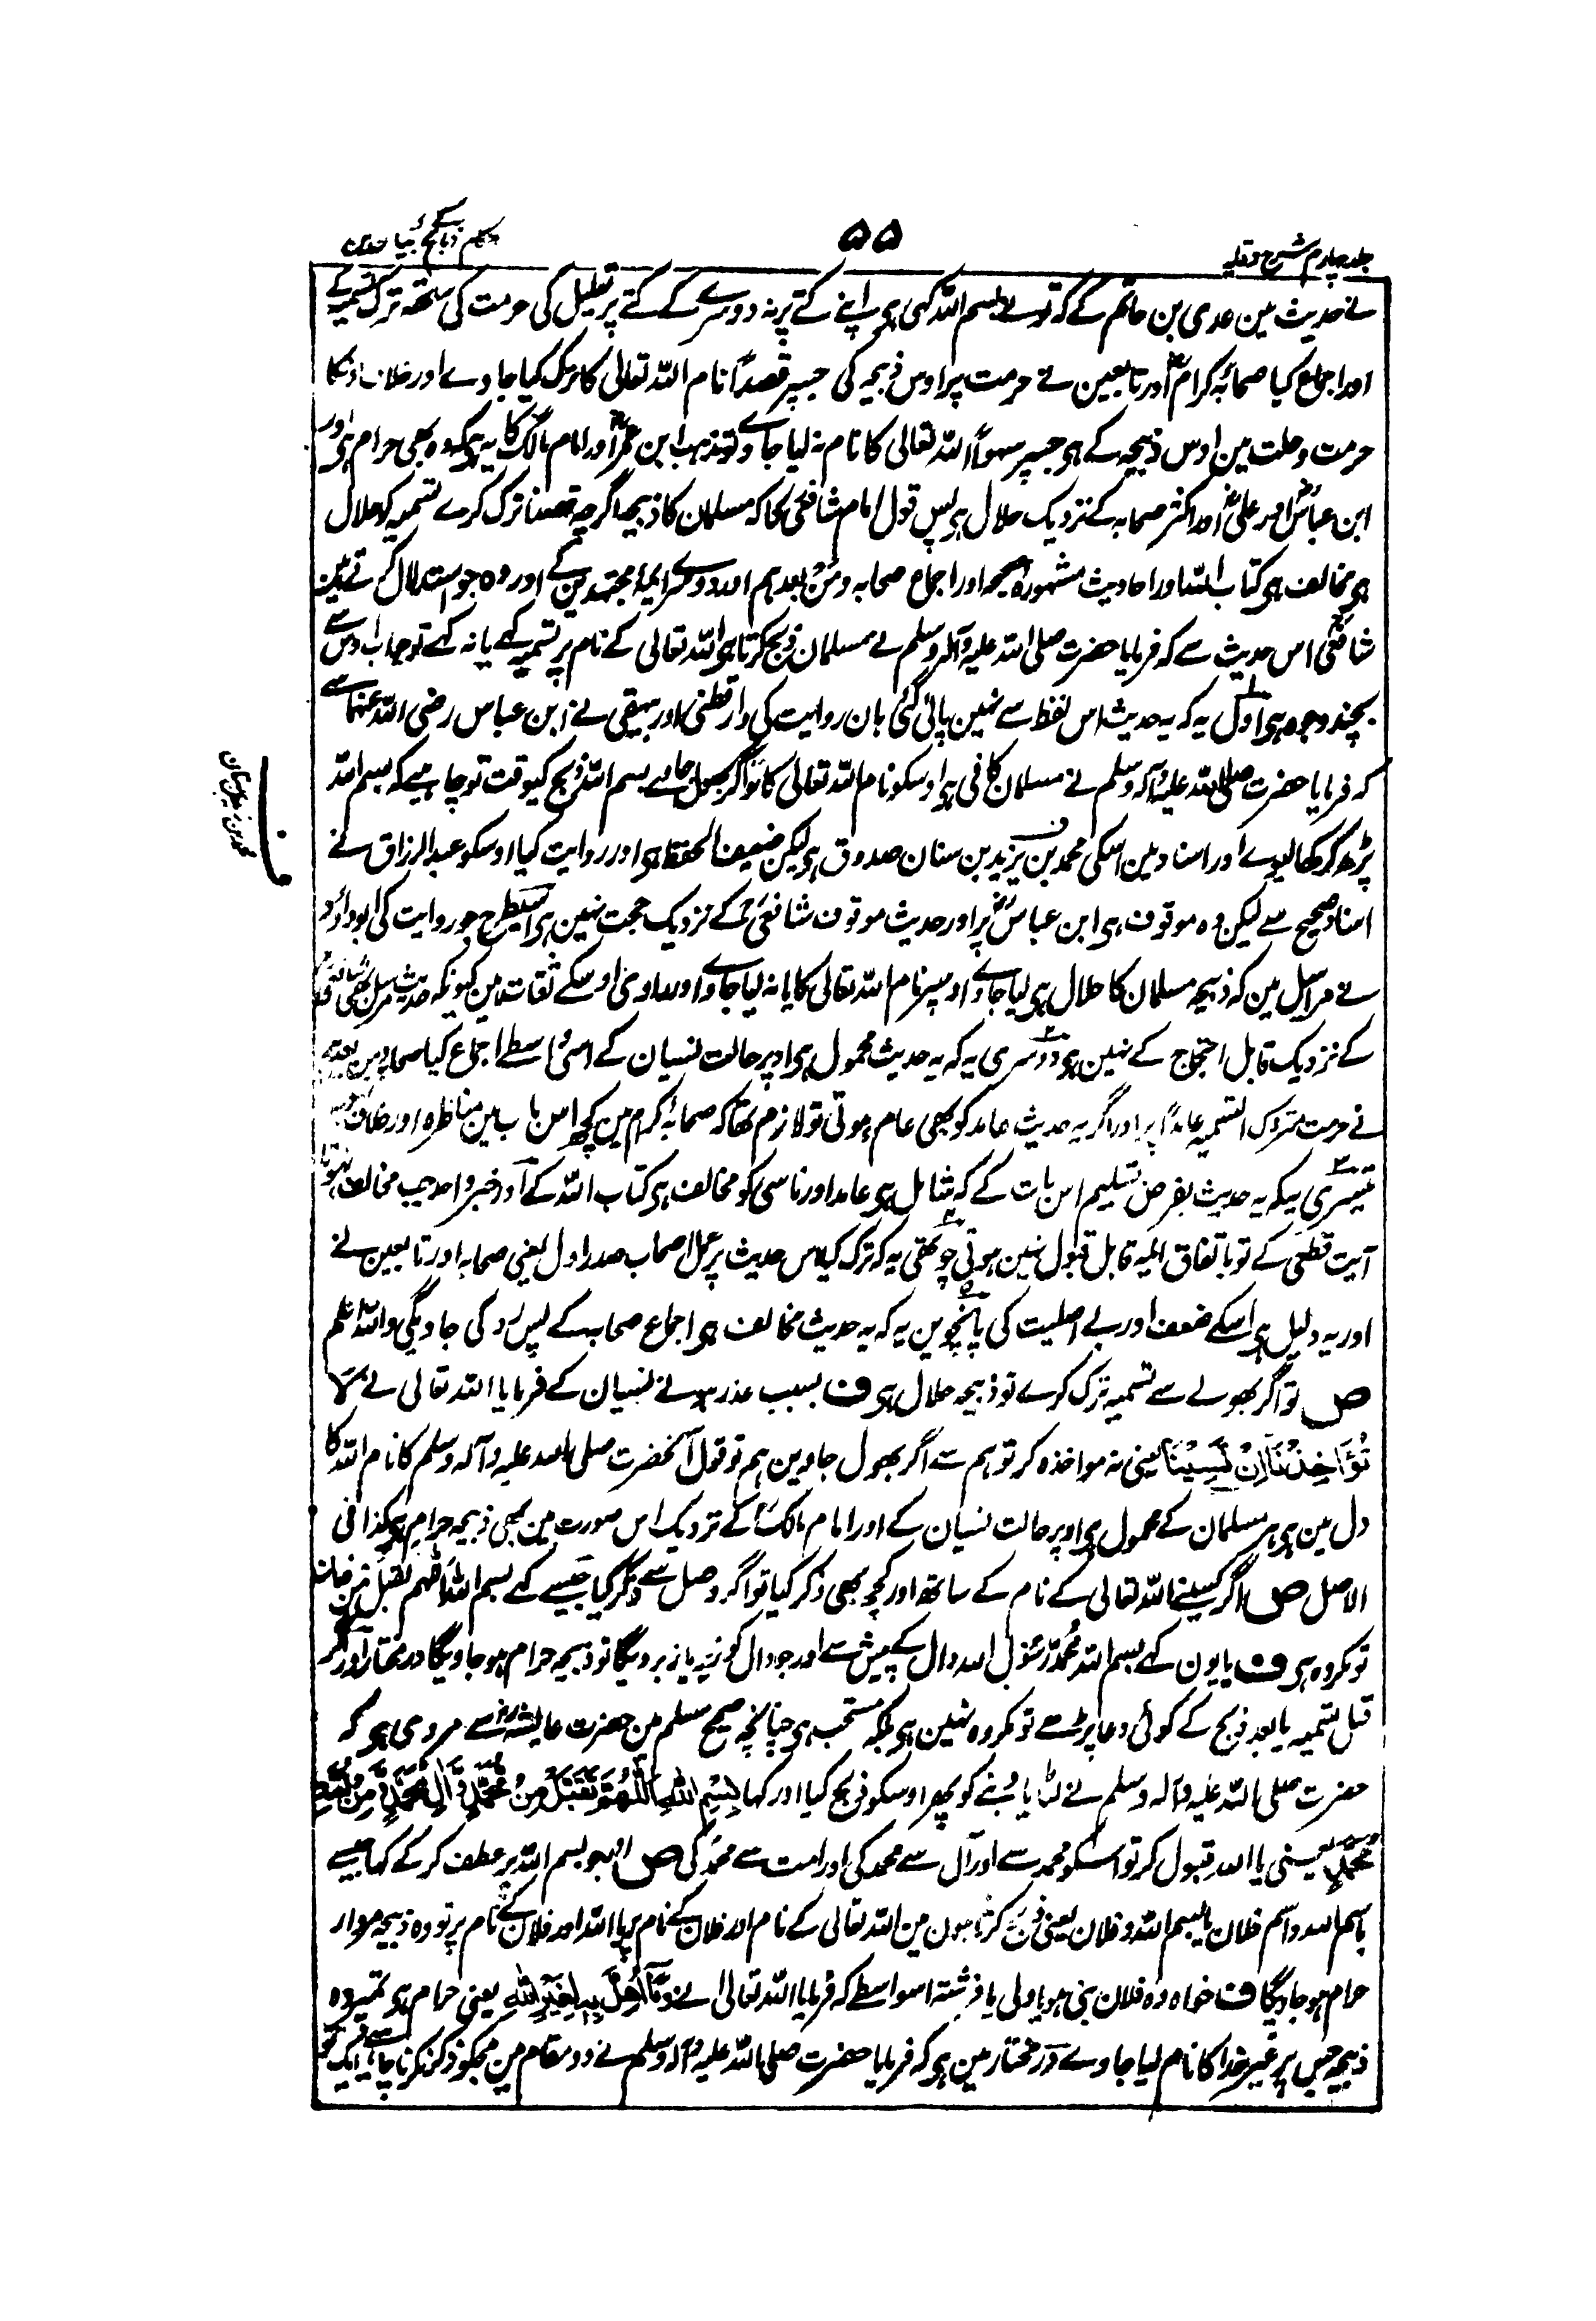 جلد چہارم شرح وقایہ
۵۵
نے حدیث مین عدی بن حاتم کے کہ تونے بسم اللہ کہی ہی اپنے کتے پر نہ دوسرے کے کتے پر تعلیل کی حرمت کی ساتھ ترک تسمیہ کے
اور اجماع کیا صحابۂ کرام اور تابعین نے حرمت پر اوس ذبیحہ کی جسپر قصداً نام اللہ تعالی کا ترک کیا جاوے اور خلاف اونکا
حرمت و حلت مین اوس ذبیحہ کے ہی جسپر سہواً اللہ تعالی کا نام نہ لیا جاوے تو مذہب ابن عمرؓ اور امام مالکؒ کا یہ ہی کہ وہ بھی حرام ہی اور
ابن عباسؓ اور علیؓ اور اکثر صحابہ کے نزدیک حلال ہی پس قول امام شافعیؒ کا کہ مسلمان کا ذبیحہ اگرچہ قصداً ترک کرے تسمیہ کو حلال
ہی مخالف ہی کتاب اللہ اور احادیث مشہورہ صحیحہ اور اجماع صحابہ ومن بعدہم اور دوسرے ایمۂ مجتہدین کے اور وہ جو استدلال کرتے ہین
شافعیؒ اس حدیث سے کہ فرمایا حضرت صلی اللہ علیہ وآلہ وسلم نے مسلمان ذبح کرتا ہی اللہ تعالی کے نام پر تسمیہ کہے یا نہ کہے تو جواب اوس سے
بچند وجوہ ہی اول یہ کہ یہ حدیث اس لفظ سے نہین پائی گئی ہان روایت کی دارقطنی اور بیہقی نے ابن عباس رضی اللہ عنہما سے
کہ فرمایا حضرت صلی اللہ علیہ وآلہ وسلم نے مسلمان کافی ہی اوسکو نام اللہ تعالی کا تو اگر بھول جاے بسم اللہ ذبح کیوقت تو چاہیے کہ بسم اللہ
پڑھ کر کھا لیوے اور اسناد مین اسکی محمد بن یزید بن سنان صدوق ہی لیکن ضعیف الحفظ ہی اور روایت کیا اوسکو عبد الرزاق نے
اسناد صحیح سے لیکن وہ موقوف ہی ابن عباسؓ پر اور حدیث موقوف شافعیؒ کے نزدیک حجت نہین ہی اسیطرح جو روایت کی ابو داؤد
نے مراسیل مین کہ ذبیحہ مسلمان کا حلال ہی لیا جاوے اوسپر نام اللہ تعالی کا یا نہ لیا جاوے اور راوی اوسکے ثقات ہین کیونکہ حدیث مرسل بھی شافعی
کے نزدیک قابل احتجاج کے نہین ہی دوسری یہ کہ یہ حدیث محمول ہی اوپر حالت نسیان کے اسی واسطے اجماع کیا صحابہ ومن بعدہم
نے حرمت متروک التسمیہ عامداً پر اور اگر یہ حدیث عامد کو بھی عام ہوتی تو لازم تھا کہ صحابۂ کرام مین کچھ اس باب مین مناظرہ اور خلاف
تیسری یہ کہ یہ حدیث بفرض تسلیم اس بات کے کہ شامل ہی عامد اور ناسی کو مخالف ہی کتاب اللہ کے اور خبر واحد جب مخالف
آیت قطعی کے تو باتفاق ایمہ قابل قبول نہین ہوتی چوتھی یہ کہ ترک کیا اس حدیث پر عمل اصحاب صدر اول یعنی صحابہ اور تابعین نے
اور یہ دلیل ہی اسکے ضعف اور بے اصلیت کی پانچوین یہ کہ یہ حدیث مخالف ہی اجماع صحابہ کے پس رد کی جاویگی واللہ اعلم
ص تو اگر بھولے سے تسمیہ ترک کرے تو ذبیحہ حلال ہی ف بسبب عذر ہونے نسیان کے فرمایا اللہ تعالی نے لَا
تُؤَاخِذْنَا اِنْ نَّسِيْنَا یعنی نہ مواخذہ کر تو ہم سے اگر بھول جاوین ہم تو قول آنحضرت صلی اللہ علیہ وآلہ وسلم کا نام اللہ کا
دل مین ہی ہر مسلمان کے محمول ہی اوپر حالت نسیان کے اور امام مالکؒ کے نزدیک اس صورت مین بھی ذبیحہ حرام ہی کذا فی
الاصل ص اگر کسینے اللہ تعالی کے نام کے ساتھ اور کچھ بھی ذکر کیا تو اگر وصل سے ذکر کیا جیسے کہے بسم اللہ اللہم تقبل من فلان
تو مکروہ ہی ف یا یون کہے بسم اللہ محمدٌ رسول اللہ دال کے پیش سے اور جو دال کو زیر یا زبر دیگا تو ذبیحہ حرام ہو جاویگا درمختار اور اگر
قبل تسمیہ یا بعد ذبح کے کوئی دعا پڑھے تو مکروہ نہین ہی بلکہ مستحب ہی چنانچہ صحیح مسلم مین حضرت عایشہؓ سے مروی ہی کہ
حضرت صلی اللہ علیہ وآلہ وسلم نے لٹایا دنبے کو پھر اوسکو ذبح کیا اور کہا بِسْمِ اللّٰهِ اَللّٰهُمَّ تَقَبَّلْ مِنْ مُّحَمَّدٍ وَّ اٰلِ مُحَمَّدٍ وَّمِنْ اُمَّةِ
مُحَمَّدٍ یعنی یا اللہ قبول کر تو اسکو محمد سے اور آل سے محمد کی اور امت سے محمد کی ص اور جو بسم اللہ پر عطف کر کے کہا جیسے
باسم اللہ واسم فلان یا بسم اللہ وفلان یعنی ذبح کرتا ہون مین اللہ تعالی کے نام اور فلان کے نام پر یا اللہ اور فلان کے نام پر تو وہ ذبیحہ مردار
حرام ہو جاویگا ف خواہ وہ فلان نبی ہو یا ولی یا فرشتہ اسواسطے کہ فرمایا اللہ تعالی نے وَمَآ اُهِلَّ بِهٖ لِغَيْرِ اللّٰهِ یعنی حرام ہی تمپر وہ
ذبیحہ جس پر غیر خدا کا نام لیا جاوے درمختار مین ہی کہ فرمایا حضرت صلی اللہ علیہ وآلہ وسلم نے دو مقام مین مجکو ذکر نکرنا چاہیے ایک